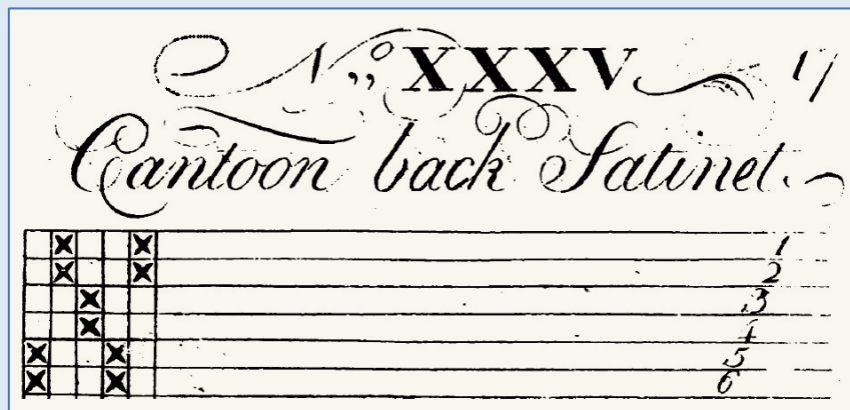 No „ XXXV 17
Cantoon back Satinet.
1
2
3
4
5
6